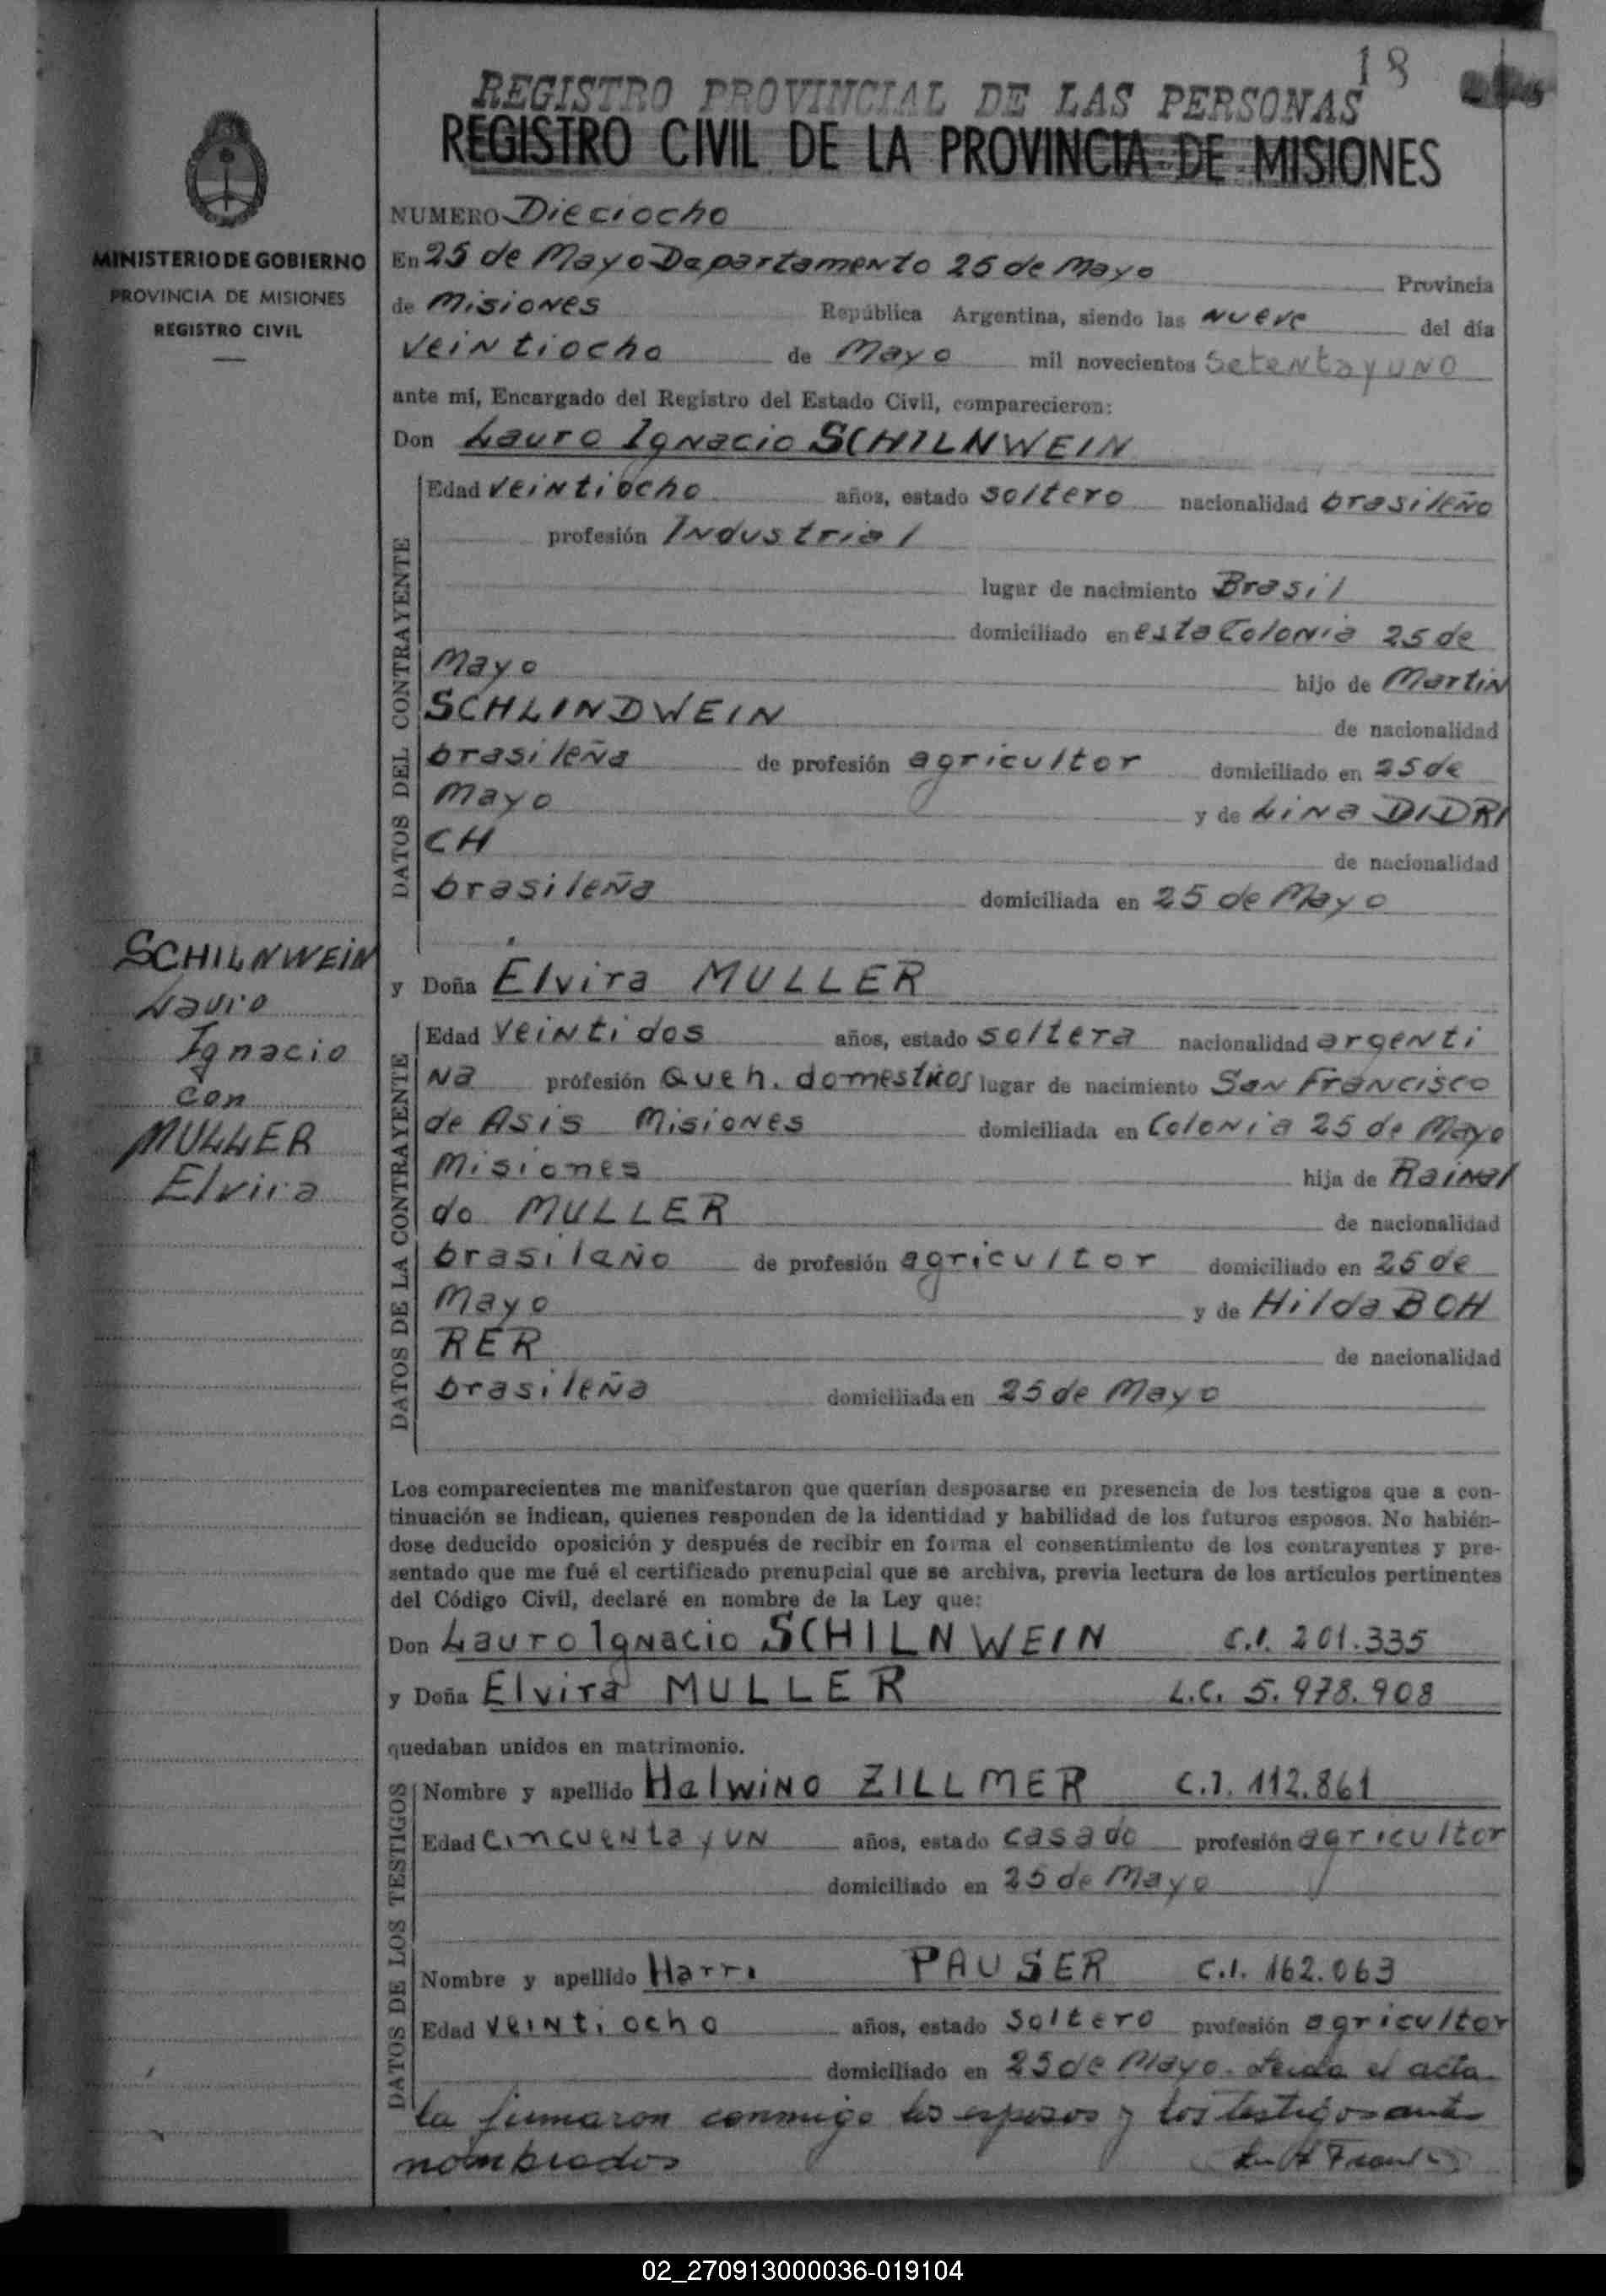 18
REGISTRO PROVINCIAL DE LAS PERSONAS
REGISTRO CIVIL DE LA PROVINCIA DE MISIONES
MINISTERIO DE GOBIERNO
PROVINCIA DE MISIONES
REGISTRO CIVIL
NUMERO Dieciocho
En 25 de Mayo Departamento 25 de Mayo Provincia
de Misiones República Argentina, siendo las nueve del día
veintiocho de Mayo mil novecientos setenta y uno
ante mí, Encargado del Registro del Estado Civil, comparecieron:
Don Lauro Ignacio SCHILNWEIN
DATOS DEL CONTRAYENTE
Edad veintiocho años, estado soltero nacionalidad brasileño
profesión Industrial
lugar de nacimiento Brasil
domiciliado en esta Colonia 25 de
Mayo hijo de Martin
SCHLINDWEIN de nacionalidad
brasileña de profesión agricultor domiciliado en 25 de
Mayo y de Lina DIDRI
CH de nacionalidad
brasileña domiciliada en 25 de Mayo
SCHILNWEIN
Lauro
Ignacio
con
MULLER
Elvira
y Doña Elvira MULLER
DATOS DE LA CONTRAYENTE
Edad veintidos años, estado soltera nacionalidad argenti
na profesión Queh. domesticos lugar de nacimiento San Francisco
de Asis Misiones domiciliada en Colonia 25 de Mayo
Misiones hija de Rainal
do MULLER de nacionalidad
brasilaño de profesión agricultor domiciliado en 25 de
Mayo y de Hilda BOH
RER de nacionalidad
brasileña domiciliada en 25 de Mayo
Los comparecientes me manifestaron que querían desposarse en presencia de los testigos que a con-
tinuación se indican, quienes responden de la identidad y habilidad de los futuros esposos. No habién-
dose deducido oposición y después de recibir en forma el consentimiento de los contrayentes y pre-
sentado que me fué el certificado prenupcial que se archiva, previa lectura de los artículos pertinentes
del Código Civil, declaré en nombre de la Ley que:
Don Lauro Ignacio SCHILNWEIN C.I. 201.335
y Doña Elvira MULLER L.C. 5.978.908
quedaban unidos en matrimonio.
DATOS DE LOS TESTIGOS
Nombre y apellido Halwino ZILLMER C.I. 112.861
Edad cincuenta y un años, estado casado profesión agricultor
domiciliado en 25 de Mayo
Nombre y apellido Harri PAUSER C.I. 162.063
Edad veintiocho años, estado soltero profesión agricultor
domiciliado en 25 de Mayo. Leida el acta
la firmaron conmigo los esposos y los testigos ante
nombrados
02_270913000036-019104